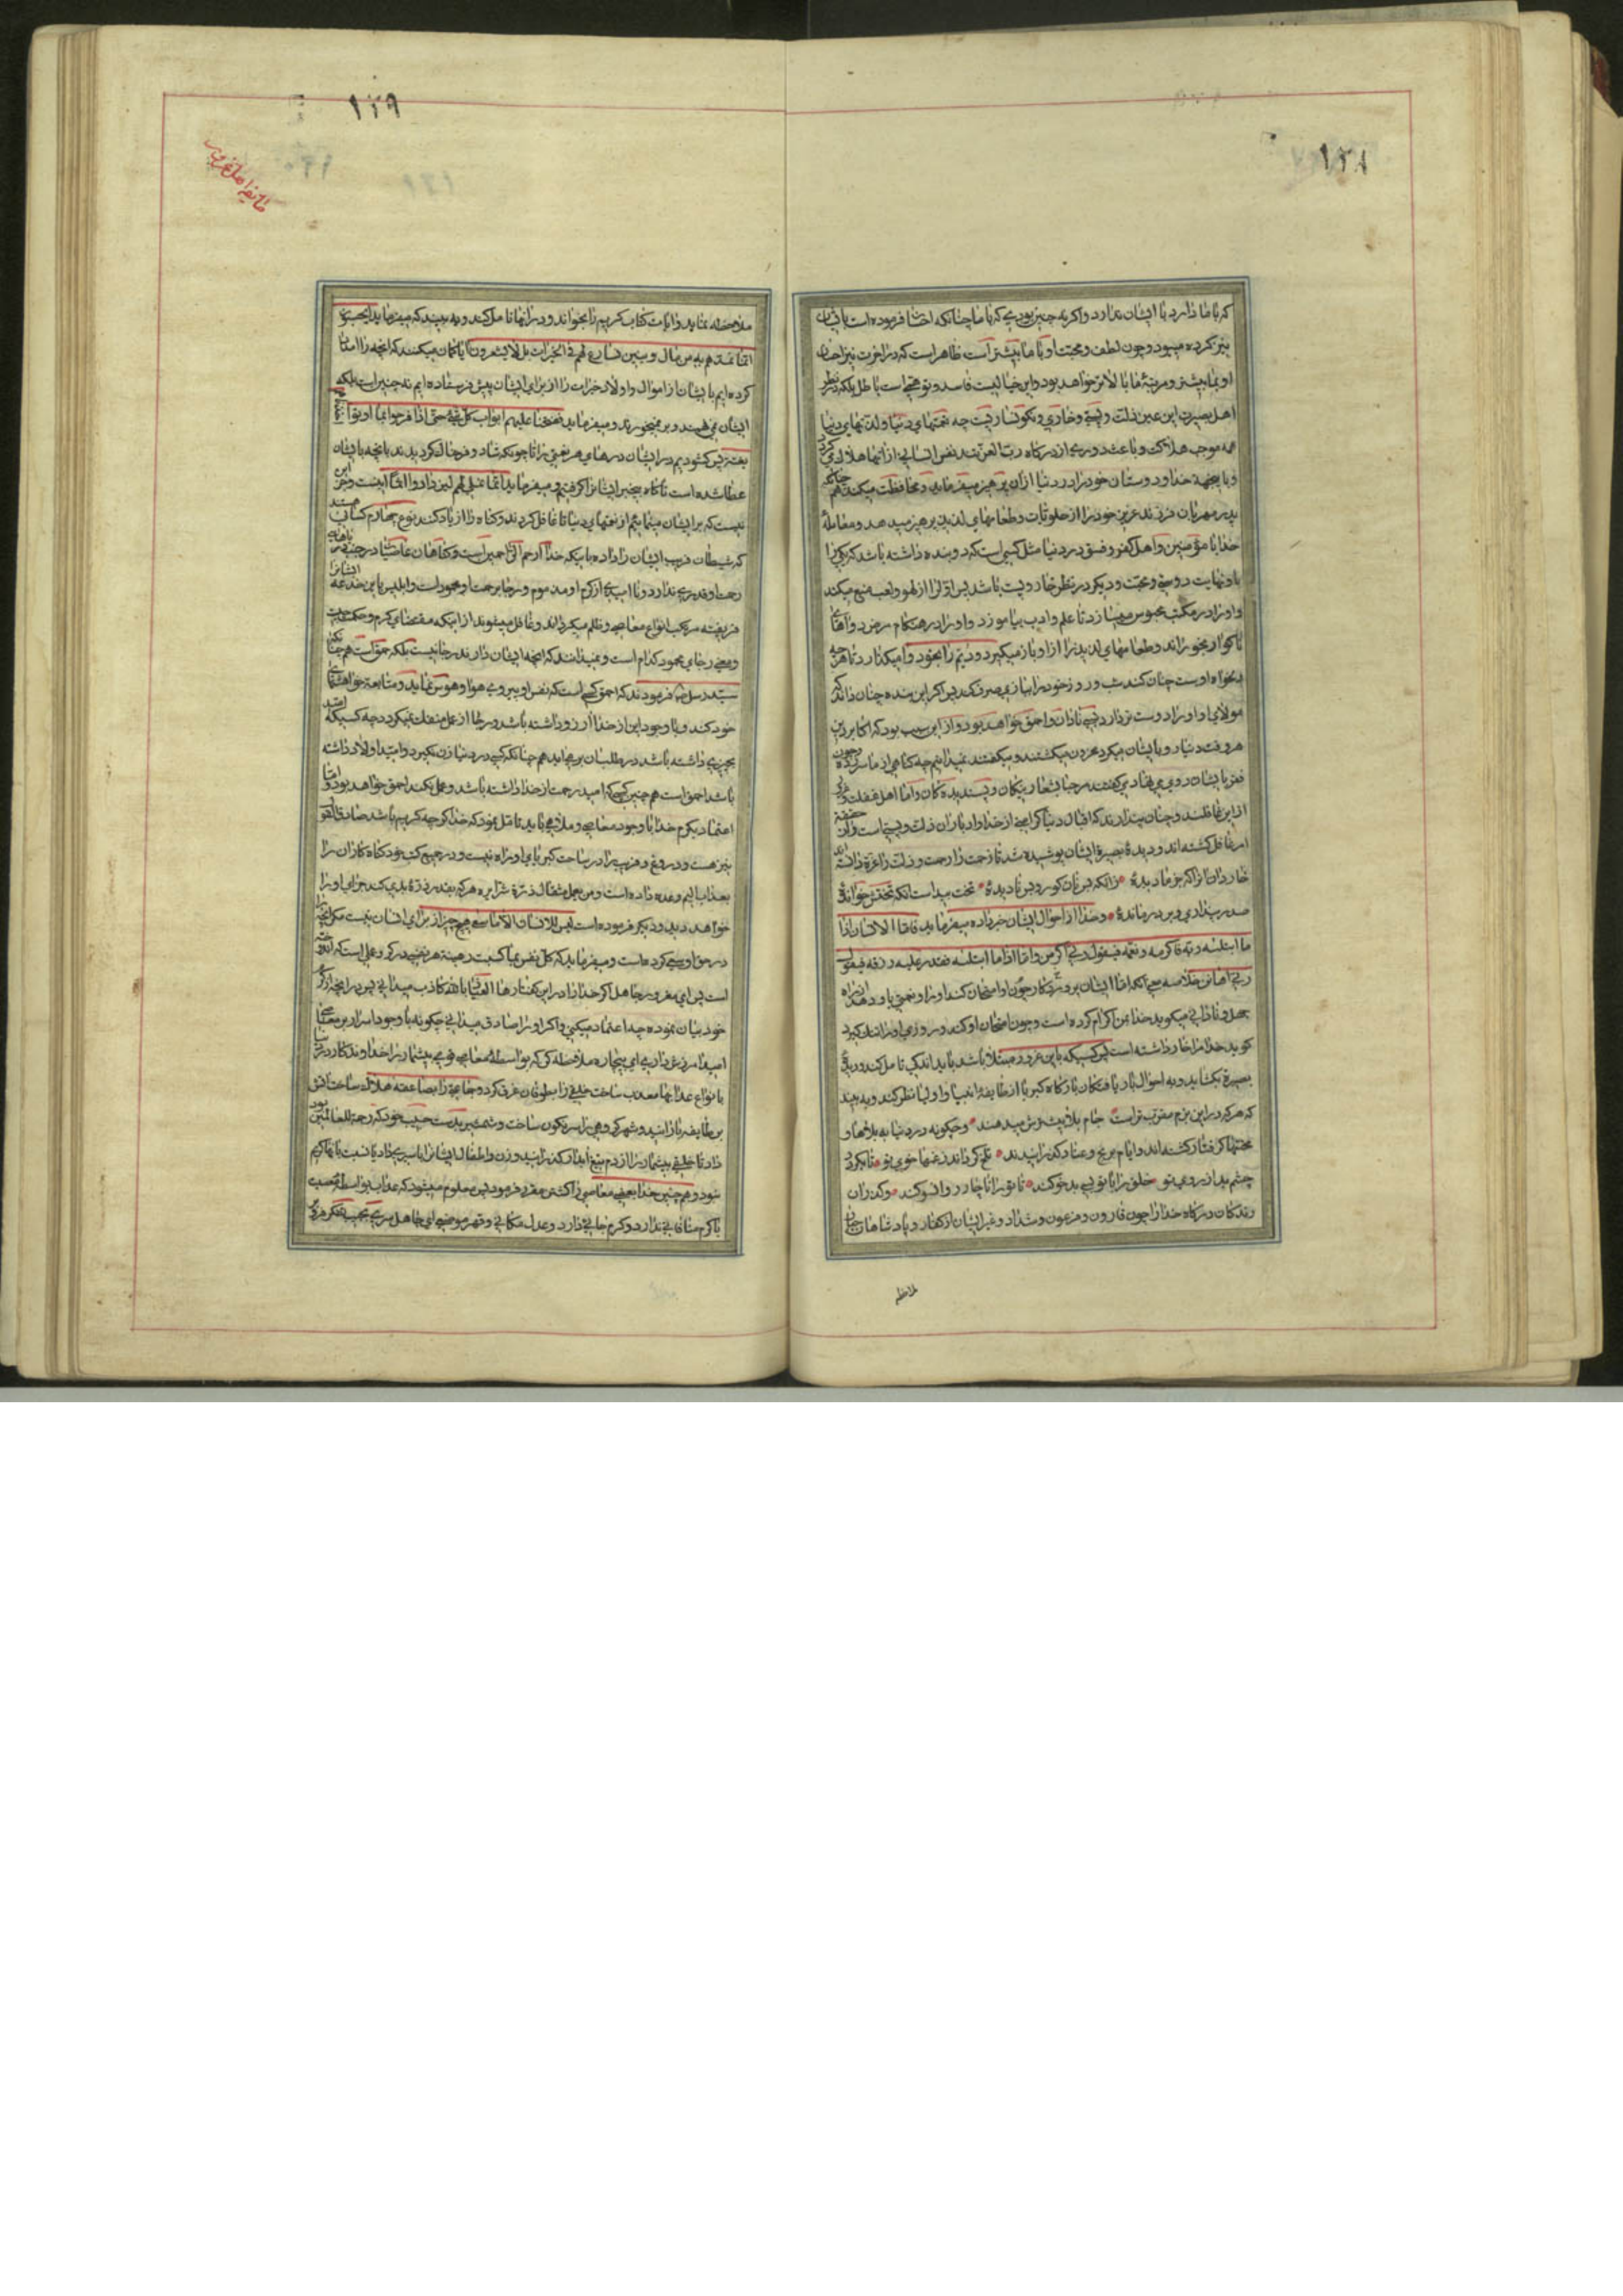 ۱۲۸
که با ما دارد با ایشان ندارد و اکر نه چنین بودی که با ما چنانکه احسان فرموده است با ایشان
نیز کرده میبود و چون لطف و محبت او با ما بیشتر است ظاهر است که در اخرت نیز احسان
او بما بیشتر و مرتبهٔ ما بالاتر خواهد بود و این خیالیست فاسد و توهمی است باطل بلکه در نظر
اهل بصیرت این عین ذلت و پستی و خاری و نکونساریست چه نعمتهای دنیا و لذتهای دنیا
همه موجب هلاکت و باعث دوری از درکاه رب العزتند نفس انسانی از انها هلاک می کردد
و باینجهة خدا دوستان خود را در دنیا از ان پرهیز میفرماید و محافظت میکند همچنانکه
پدر مهربان فرزند عزیز خود را از حلویات و طعامهای لذیذ پرهیز میدهد و معاملهٔ
خدا با مؤمنین و اهل کفر و فسق در دنیا مثل کسی است که دو بنده داشته باشد که یکی را
با و نهایت دوستی و محبت و دیکر در نظر خار و پست باشد پس اولی را از لهو و لعب منع میکند
و او را در مکتب محبوس میسازد تا علم و ادب بیاموزد و او را در هنکام مرض دواهای
ناکوار بخوراند و طعامهای لذیذ را از او باز میکیرد و دویم را بخود وا میکذارد تا هر چه
دلخواه اوست چنان کند شب و روز خود را ببازی صرف کند پس اکر این بنده چنان داند که
مولای او او را دوست تر دارد بسی نادان و احمق خواهد بود و از این سبب بود که اکابر دین
هر وقت دنیا رو بایشان میکرد محزون میکشتند و میکفتند نمیدانیم چه کناهی از ما سرزده و چون
فقر بایشان روی می نهاد می کفتند مرحبا بشعار نیکان و پسندیده کان و اما اهل غفلت و غرور
از این غافلند و چنان پندارند که اقبال دنیا کرامتی از خدا و ادبار ان ذلت و پستی است و از حقیقة
امر غافل کشته اند و دیدهٔ بصیرة ایشان پوشیده شد تا زحمت را رحمت و ذلت را عزة دانسته اند
خار دان انرا که خرما دیدهٔ • زانکه بس نان کور و بس نادیدهٔ • تخت بیداست انکه تختش خواندهٔ
صدر پنداری و بر در ماندهٔ • و خدا از احوال ایشان خبر داده میفرماید فاما الانسان اذا
ما ابتلیه ربه فاکرمه و نعمه فیقول ربی اکرمن و اما اذا ما ابتلیه فقدر علیه رزقه فیقول
ربی اهانن خلاصه معنی انکه اما ایشان پرورد کار چون او امتحان کند او را و نعمتی باو دهد از راه
جهل و نادانی میکوید خدا بمن اکرام کرده است و چون امتحان او کند و روزی او را تنک کیرد
کوید خدا مرا خار داشته است پس کسیکه باین غرور مبتلا باشد باید اندکی تامل کند و دیدهٔ
بصیرة بکشاید و به احوال بار یافتکان بارکاه کبریا از طایفهٔ انبیا و اولیا نظر کند و به بیند
که هر که در این بزم مقرب تر است جام بلا بیشترش میدهند • و چکونه در دنیا به بلاها و
محنتها کرفتار کشته اند و ایام برنج و عنا و کذرانیدند • تلخ کرداند ز غمها خوی تو • تا بکردد
چشم بد از روی تو خلق را با تو بی بدخو کند • تا تو را ناچار رو انسو کند • و کذران
رندکان درکاه خدا را چون قارون و فرعون و شداد و غیر ایشان از کفار و پادشاهان
ملاحظه
۱۲۹
طایفهٔ اهل غرور
ملاحظه نماید و ایات کتاب کریم را بخواند و در انها تامل کند و به بیند که میفرماید ایحسبون
انما نمدهم به من مال و بنین نسارع لهم فی الخیرات بل لا یشعرون ایا کمان میکنند که انچه را امداد
کرده ایم بایشان از اموال و اولاد خیرات را از برای ایشان پیش فرستاده ایم نه چنین است بلکه
ایشان نمی فهمند و بر نمیخورند و میفرماید ففتحنا علیهم ابواب کل شیء حتی اذا فرحوا بما اوتوا اخذناهم
بغتة پس کشودیم بر ایشان درهای هر نعمتی را تا چونکه شاد و فرحناک کردیدند بانچه بایشان
عطا شده است ناکاه بیخبر ایشانرا کرفتیم و میفرماید انما نملی لهم لیزدادوا اثما اینست و جز این
نیست که بر ایشان مینمائیم از نعمتهای دنیا تا غافل کردند و کناه را زیاد کنند نوع چهارم کسانی هستند
که شیطان فریب ایشان را داده باینکه خدا ارحم الراحمین است و کناهان عاصیان در جنب دریاهای
رحمت او قدری ندارد و ناامیدی از کرم او مذموم و رجا بر رحمت او محمود است و ابلیس باین خدعه ایشانرا
فریفته مرتکب انواع معاصی و ظلم میکرداند و غافل میشوند از اینکه مقتضای کرم و حکمت چیست
و معنی رجای محمود کدام است و نمیدانند که انچه ایشان دارند رجا نیست بلکه حمق است همچنانکه
سید رسل ص فرمودند که احمق کسی است که نفس او پیروی هوا و هوس نماید و متابعة خواهشهای
خود کند و با وجود این از خدا ارزو داشته باشد و رجا از عمل منفک نمیکردد چه کسیکه امید
بچیزی داشته باشد در طلب ان برمی اید همچنانکه کسی در دنیا زن نکیرد و امید اولاد داشته
باشد احمق است همچنین کسی که امید رحمت از خدا داشته باشد و عمل نکند احمق خواهد بود و اما
اعتماد بکرم خدا با وجود معاصی و ملاهی باید تامل نمود که خدا کرچه کریم باشد صادق القول
نیز هست و دروغ و فریب را در ساحت کبریای او راه نیست و در جمیع کتب خود کناه کاران را
بعذاب الیم وعده داده است و من یعمل مثقال ذرة شرا یره هر که بقدر ذرهٔ بدی کند جزای او را
خواهد دید و دیکر فرموده است لیس للانسان الا ما سعی هیچ چیز از برای انسان نیست مکر انچه را
در حق او سعی کرده است و میفرماید که کل نفس بما کسبت رهینة هر نفسی در کرو عملی است که اندوخته
است پس ای مغرور جاهل اکر خدا را در این کفتارها العیاذ بالله کاذب میدانی پس در انچه از کرم
خود بیان نموده چرا اعتماد میکنی و اکر او را صادق میدانی چکونه با وجود اسرار بر معاصی
امید امرزش داری ای بیچاره ملاحظه کن که بواسطهٔ معاصی قومی بیشمار را خداوند کار در دنیا
بانواع عذابها معذب ساخت خلقی را بطوفان غرق کرد و جماعتی را بصاعقه هلاک ساخت اتش
بر طایفهٔ بارانید و شهر کروهی را سرنکون ساخت و شمشیر بدست حبیب خود که رحمة للعالمین بود
داد تا خلقی بیشمار را از دم تیغ ابدار کذرانید و زن و اطفال ایشانرا باسیری داد یا نسبت بانها کریم
نبود و همچنین خدا بعضی معاصی را کشتن مقرر فرمود پس معلوم میشود که عذاب بواسطهٔ معصیت
با کرم منافاتی ندارد و کرم جائی دارد و عدل مکانی و قهر موضعی ای جاهل